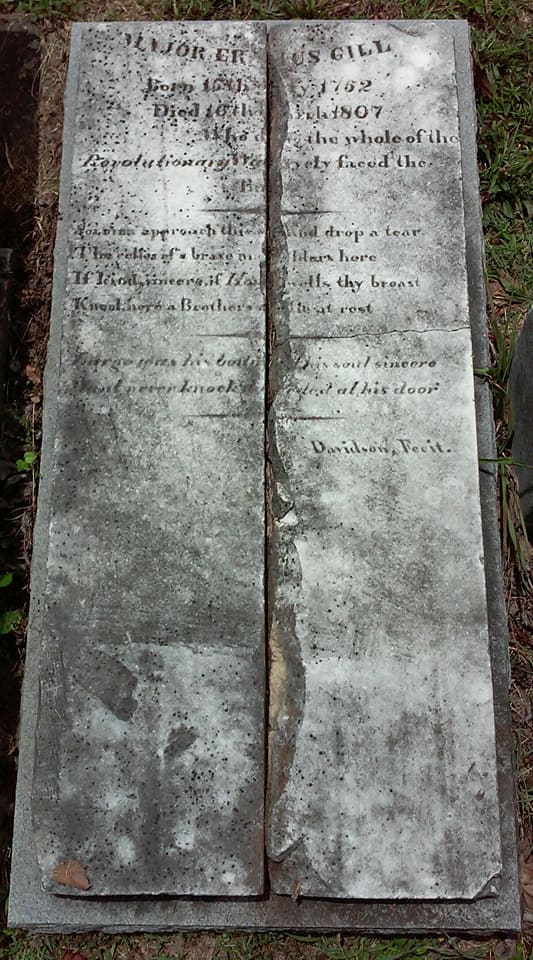 MAJOR ER US GILL
Born 15th y 1762
Died 16th ch 1807
Who d the whole of the
Revolutionary Wa vely faced the
approach this and drop a tear
The relics of a brave an lders here
If kind, sincere, if Ho wells thy breast
Kneel here a Brothers at rest
Large was his boun his soul sincere
never knock'd at his door
Davidson, Fecit.